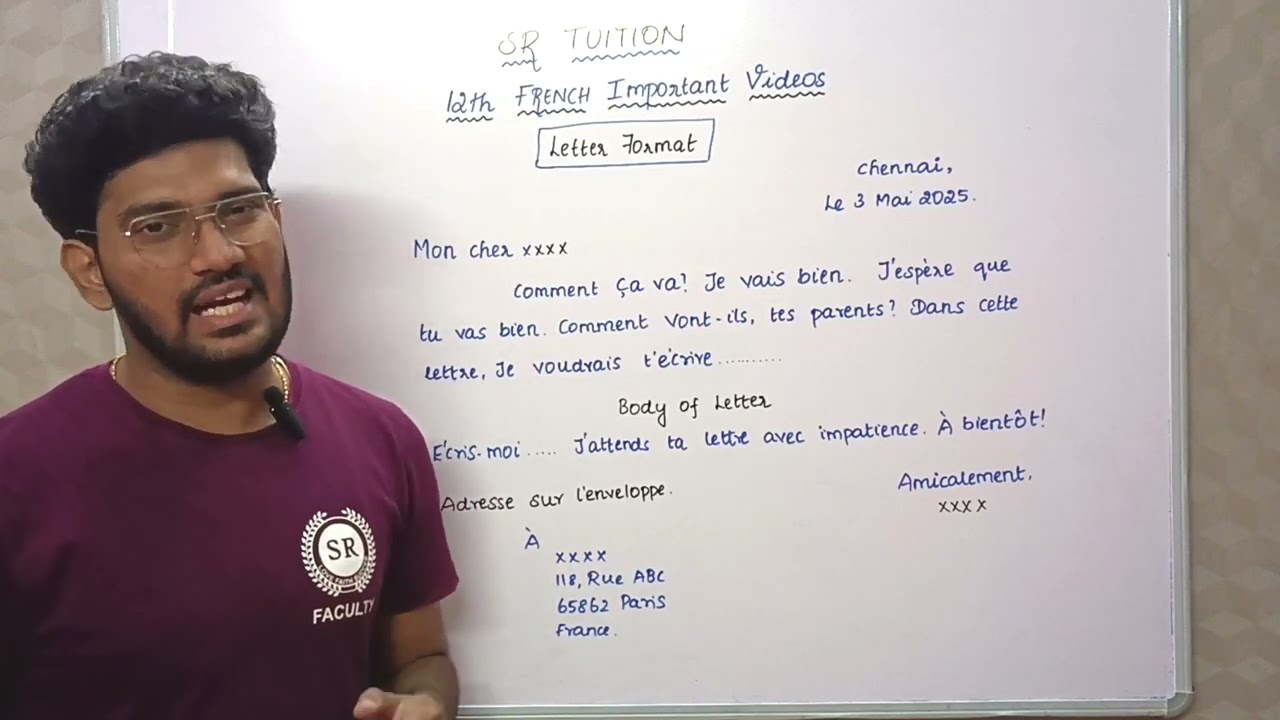 SR TUITION
12th FRENCH Important Videos
Letter Format
Chennai,
Le 3 Mai 2025.
Mon cher xxxx
Comment ça va? Je vais bien. J'espère que
tu vas bien. Comment vont-ils, tes parents? Dans cette
lettre, Je voudrais t'écrire..........
Body of Letter
Écris-moi..... J'attends ta lettre avec impatience. À bientôt!
Amicalement,
xxxx
Adresse sur l'enveloppe.
À
xxxx
118, Rue ABC
65862 Paris
France.
SR
FACULTY